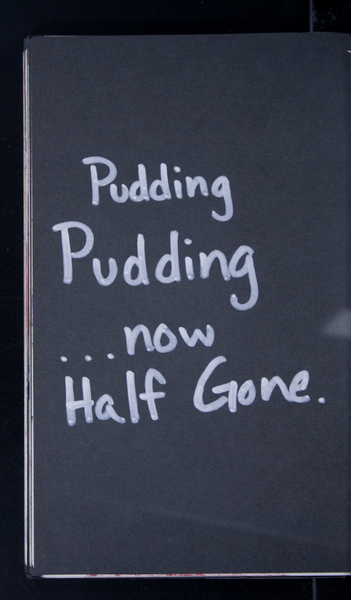 Pudding
Pudding
...now
Half Gone.